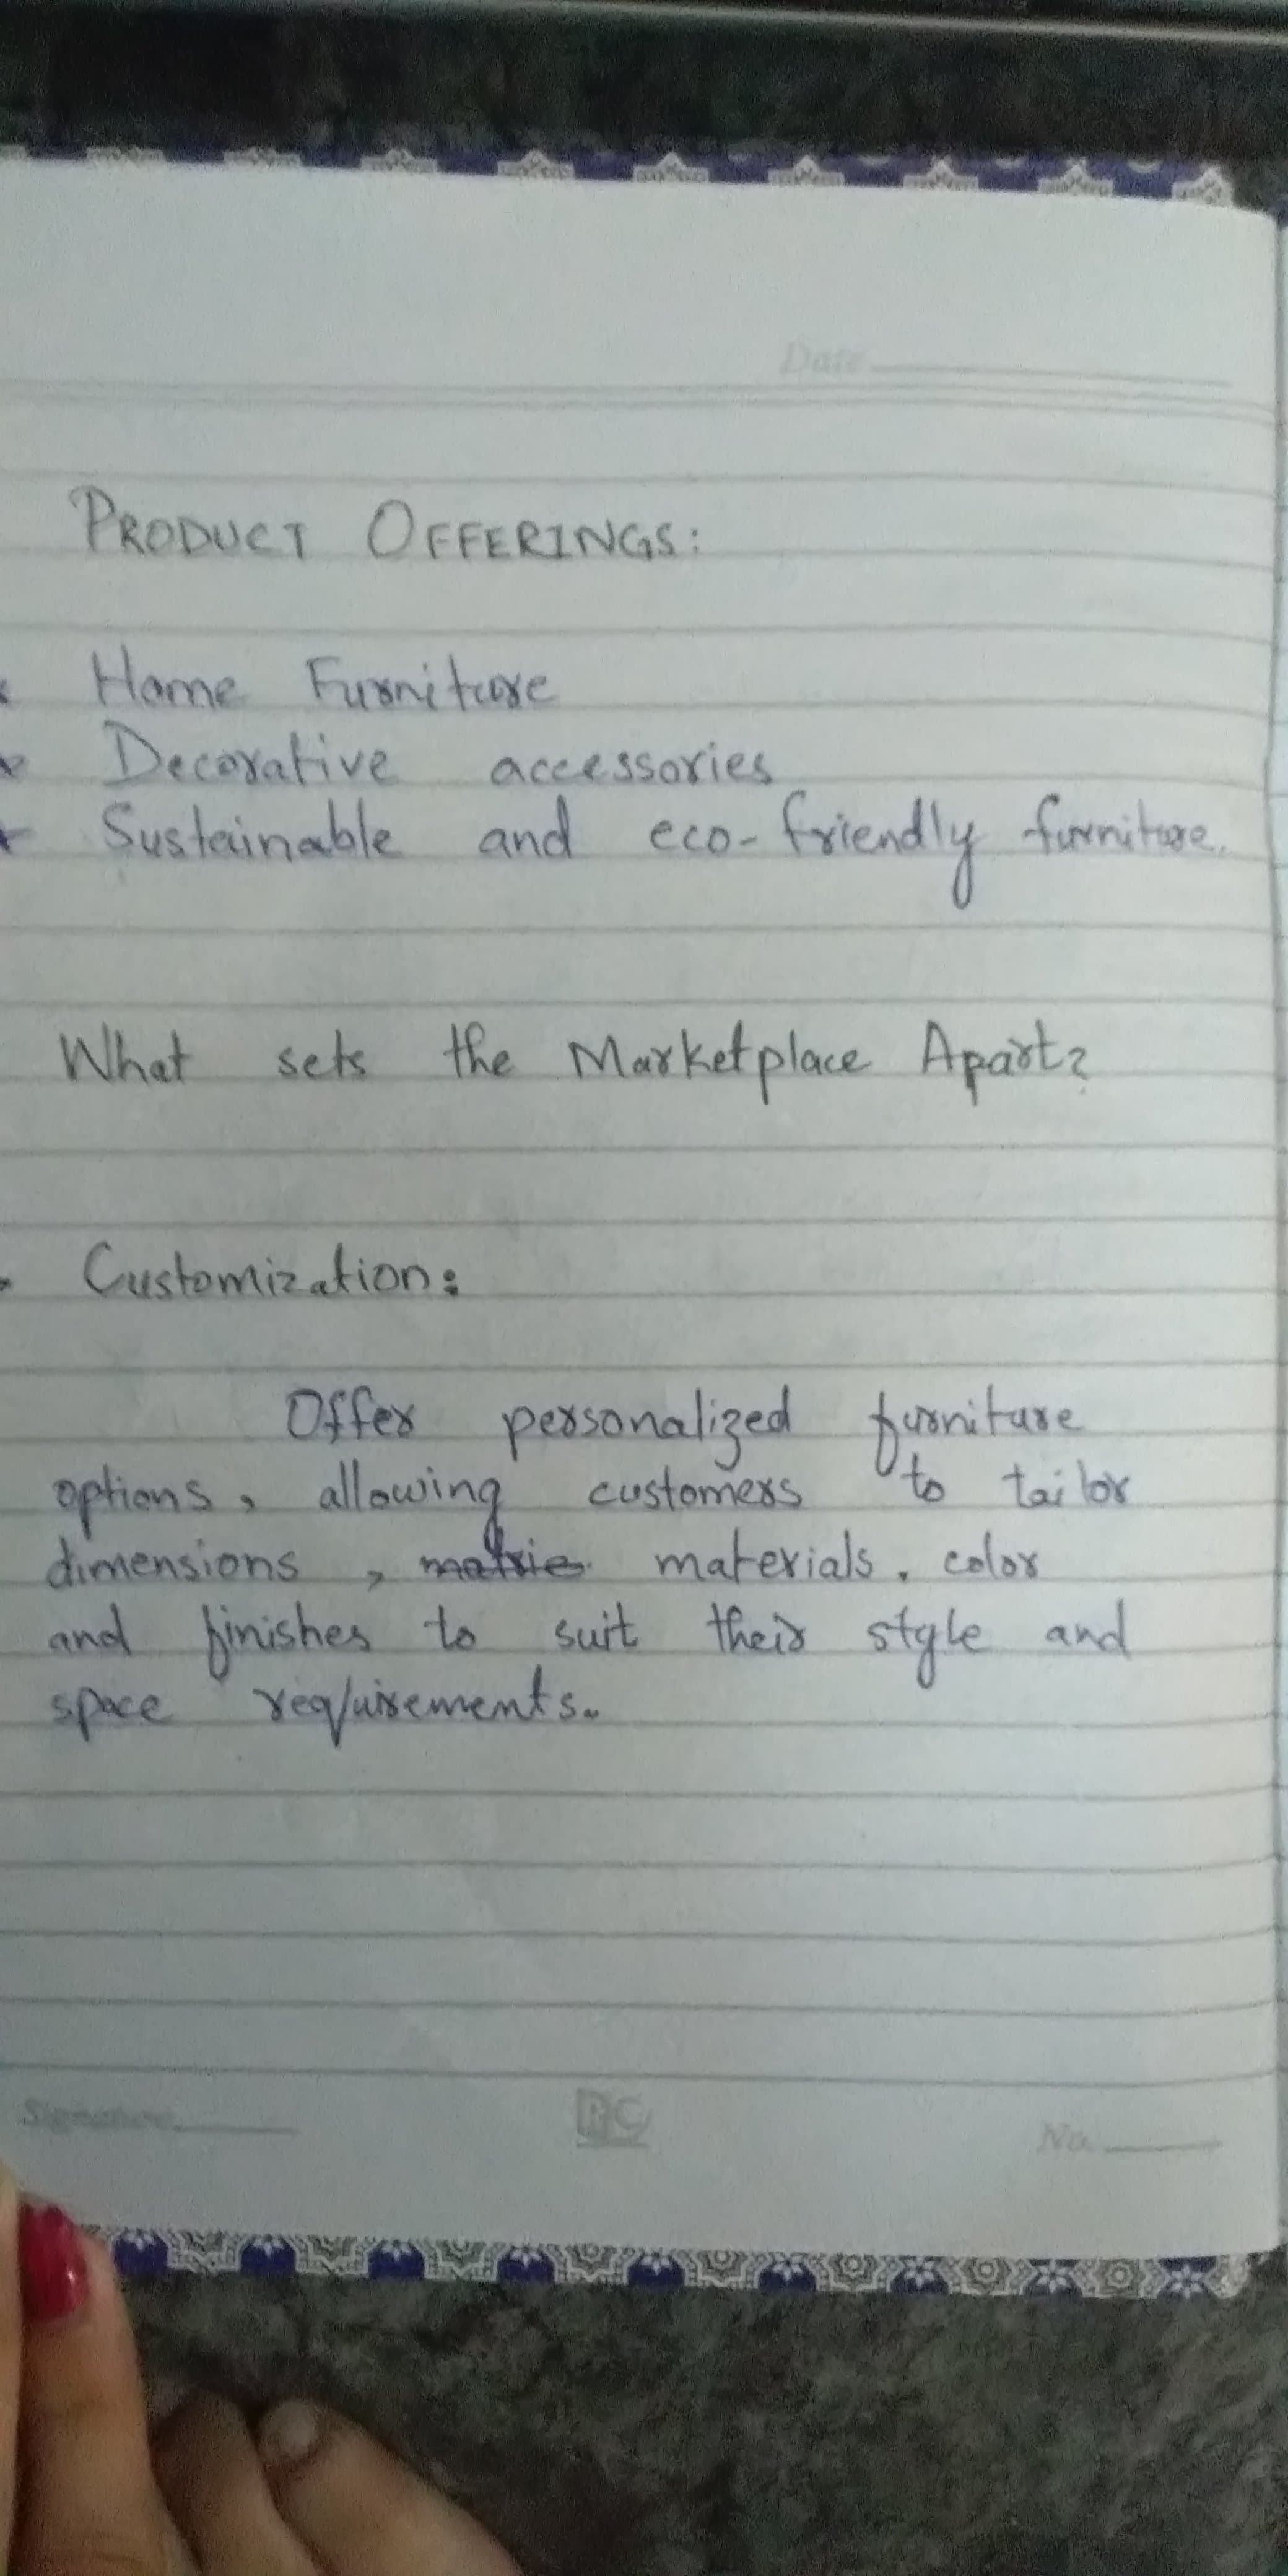 Date
PRODUCT OFFERINGS:
Home Furniture
Decorative accessories
Sustainable and eco-friendly furniture.
What sets the Marketplace Apart?
Customization:
Offer personalized furniture
options, allowing customers to tailor
dimensions, materials, color
and finishes to suit their style and
space requirements.
Signature
RC
No.